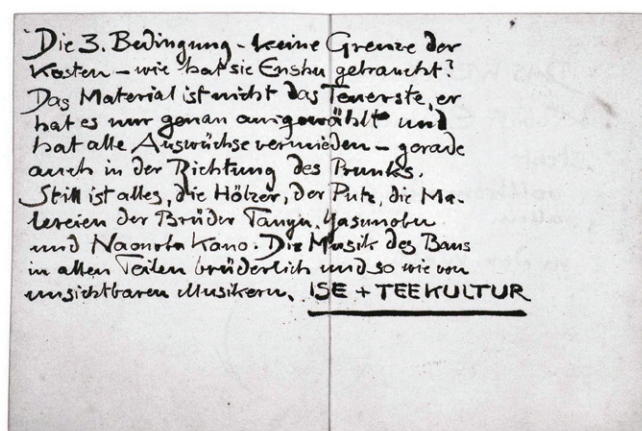 Die 3. Bedingung - keine Grenze der
Kosten - wie hat sie Enshu gebraucht?
Das Material ist nicht das Teuerste, er
hat es nur genau ausgewählt und
hat alle Auswüchse vermieden - gerade
auch in der Richtung des Prunks.
Still ist alles, die Hölzer, der Putz, die Ma-
lereien der Brüder Tanyu, Yasunobu
und Naonobu Kano. Die Musik des Baus
in allen Teilen brüderlich und so wie von
unsichtbaren Musikern. ISE + TEEKULTUR